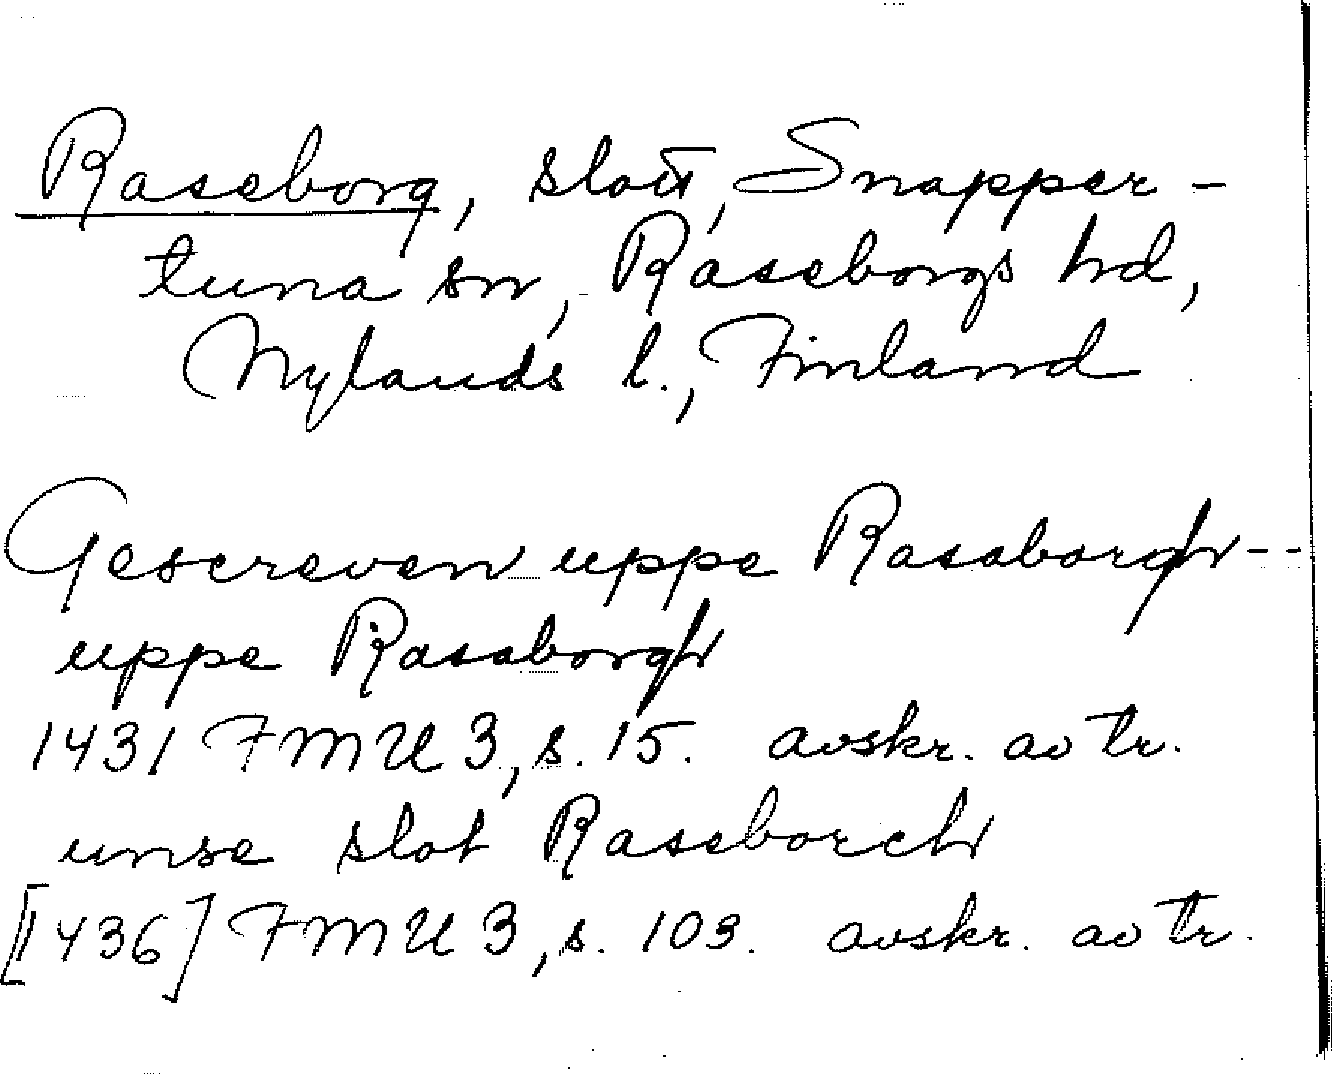 Raseborg, slott, Snapper-
tuna sn, Raseborgs hd,
Nylands l., Finland
Gescreven uppe Rasaborgh--
uppe Rasaborgh
1431 FMU 3, s. 15. avskr. av tr.
unse slot Raseborch
[1436] FMU 3, s. 103. avskr. av tr.